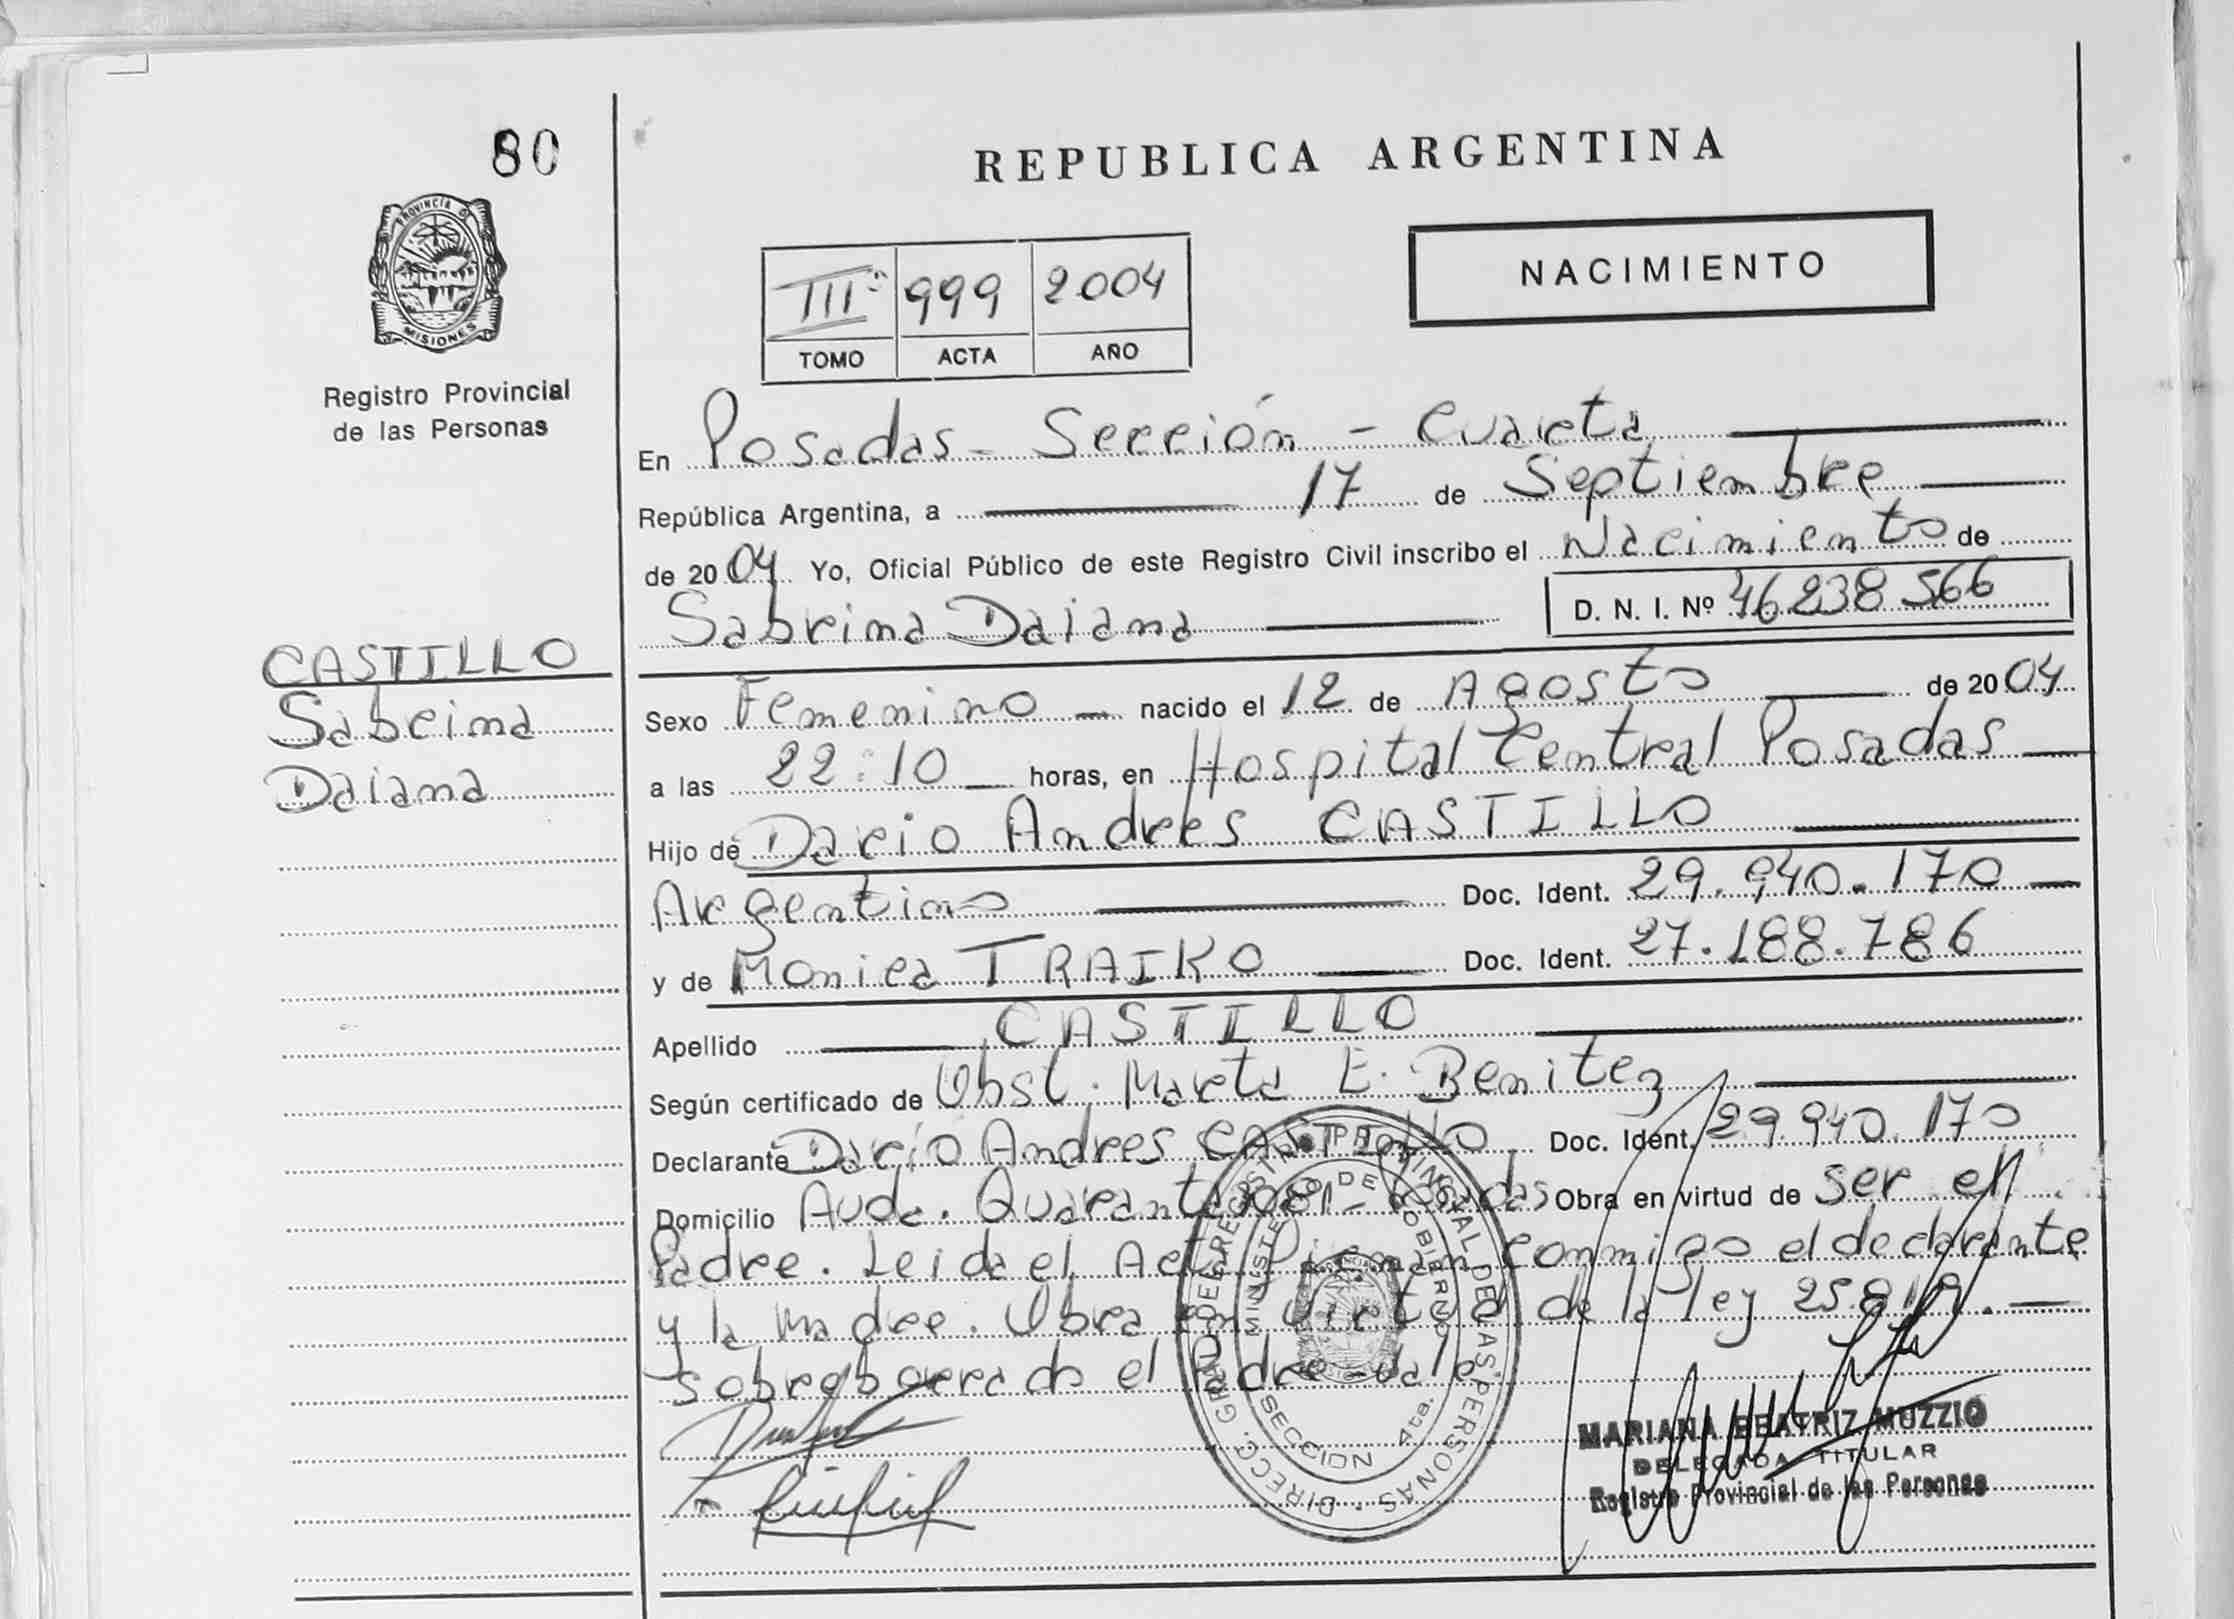 80
REPUBLICA ARGENTINA
PROVINCIA DE
MISIONES
Registro Provincial
de las Personas
III 999 2004
TOMO ACTA AÑO
NACIMIENTO
En Posadas - Sección - Cuarta
República Argentina, a 17 de Septiembre
de 2004 Yo, Oficial Público de este Registro Civil inscribo el Nacimiento de
Sabrina Daiana D. N. I. Nº 46.238.566
CASTILLO
Sabrina
Daiana
Sexo Femenino nacido el 12 de Agosto de 2004
a las 22:10 horas, en Hospital Central Posadas
Hijo de Dario Andres CASTILLO
Argentino Doc. Ident. 29.940.170
y de Monica TRAIKO Doc. Ident. 27.188.786
Apellido CASTILLO
Según certificado de Obst. Marta E. Benitez
Declarante Dario Andres CASTILLO Doc. Ident. 29.940.170
Domicilio Avda. Quaranta 3081 - Posadas Obra en virtud de ser el
Padre. Leida el Acta Firman conmigo el declarante
y la madre. Obra en virtud de la ley 25.819.
sobreborrado el Padre vale
DIRECC. GRAL. DE REGISTRO PROVINCIAL DE LAS PERSONAS
MINISTERIO DE GOBIERNO
SECCION 4ta.
MARIANA BEATRIZ MUZZIO
DELEGADA TITULAR
Registro Provincial de las Personas